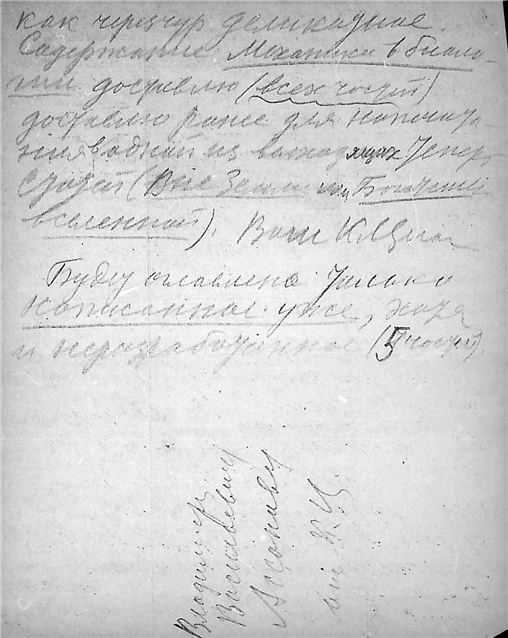 как чересчур деликадное.
Содержание Механики в биоло-
гии доставлю (всех частей)
доставлю ранее для напечата-
ния в одной из выходящих теперь
статей (Вне Земли или Богатства
вселенной). Ваш К Циол
Будет оглавлено только
написанное уже, хотя
и неразработанное (5 частей).
Владимиру
Васильевичу
Ассонову
от К. Ц.